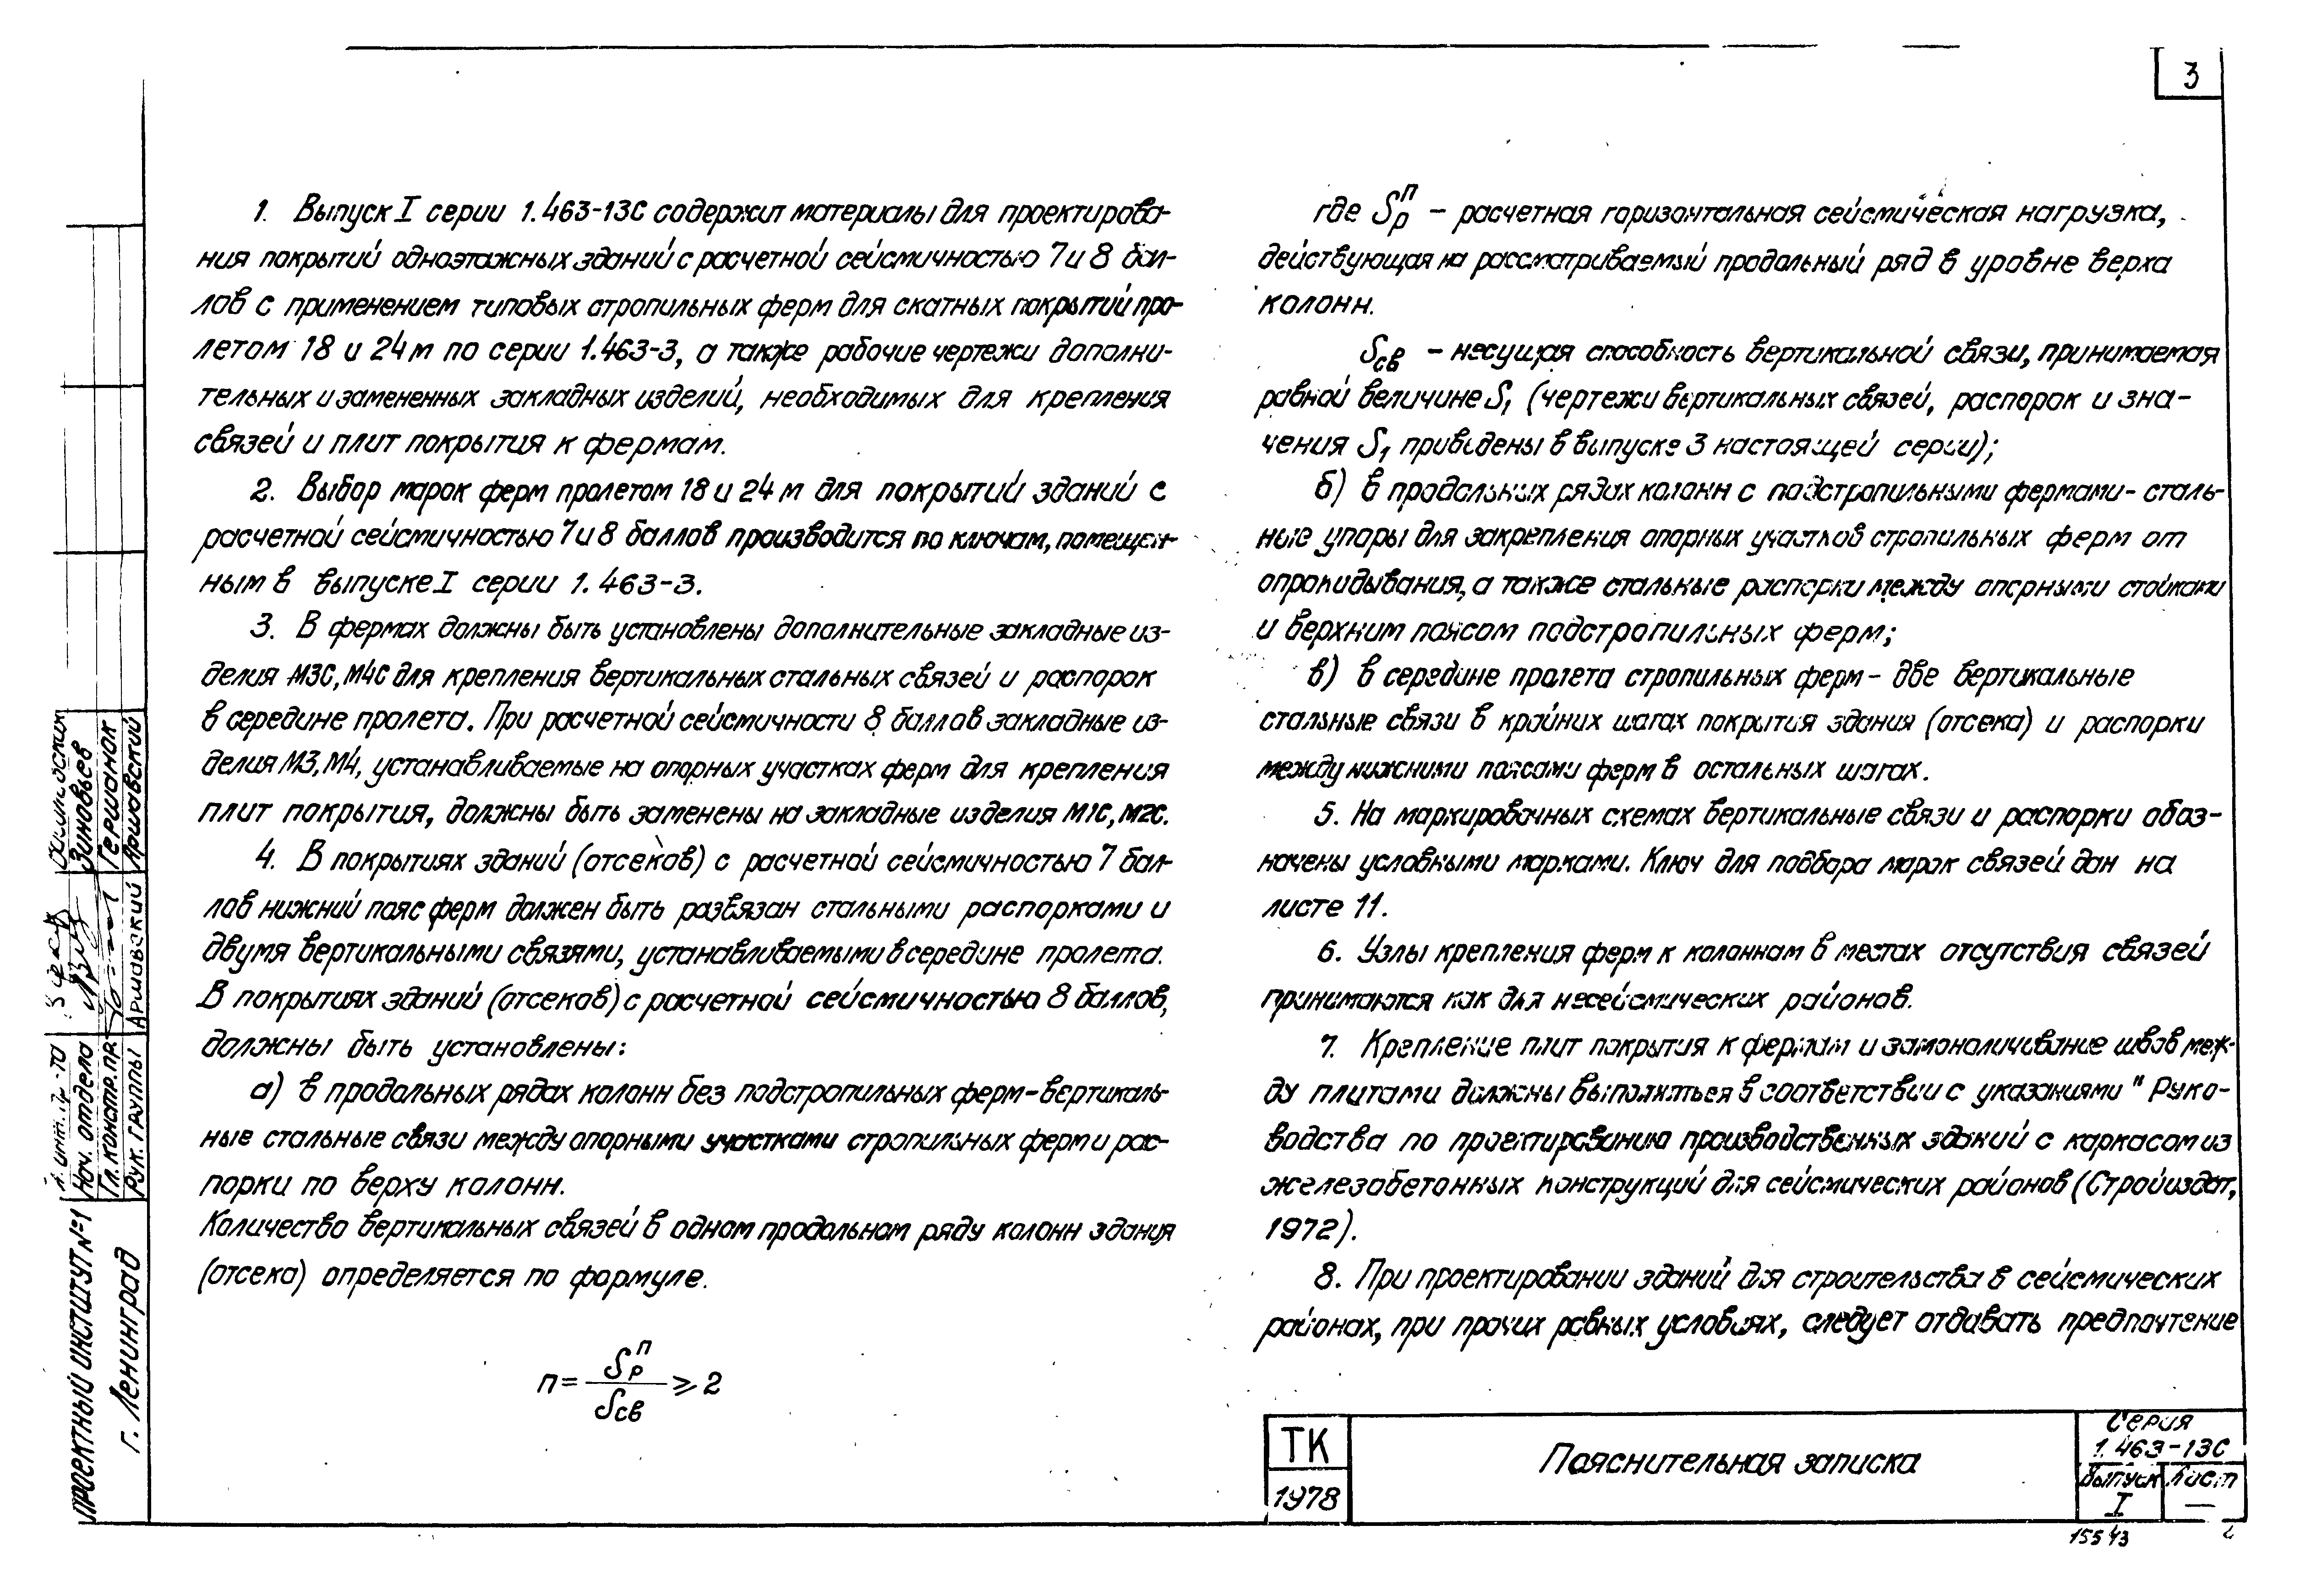 3
1. Выпуск I серии 1.463-13С содержит материалы для проектирова-
ния покрытий одноэтажных зданий с расчетной сейсмичностью 7 и 8 бал-
лов с применением типовых стропильных ферм для скатных покрытий про-
летом 18 и 24 м по серии 1.463-3, а также рабочие чертежи дополни-
тельных и замененных закладных изделий, необходимых для крепления
связей и плит покрытия к фермам.
2. Выбор марок ферм пролетом 18 и 24 м для покрытий зданий с
расчетной сейсмичностью 7 и 8 баллов производится по ключам, помещен-
ным в выпуске I серии 1.463-3.
3. В фермах должны быть установлены дополнительные закладные из-
делия М3С, М4С для крепления вертикальных стальных связей и распорок
в середине пролета. При расчетной сейсмичности 8 баллов закладные из-
делия М3, М4, устанавливаемые на опорных участках ферм для крепления
плит покрытия, должны быть заменены на закладные изделия М1С, М2С.
4. В покрытиях зданий (отсеков) с расчетной сейсмичностью 7 бал-
лов нижний пояс ферм должен быть развязан стальными распорками и
двумя вертикальными связями, устанавливаемыми в середине пролета.
В покрытиях зданий (отсеков) с расчетной сейсмичностью 8 баллов,
должны быть установлены:
а) в продольных рядах колонн без подстропильных ферм-вертикаль-
ные стальные связи между опорными участками стропильных ферм и рас-
порки по верху колонн.
Количество вертикальных связей в одном продольном ряду колонн здания
(отсека) определяется по формуле.
n = Sрп / Sсв ≥ 2
где Sрп – расчетная горизонтальная сейсмическая нагрузка,
действующая на рассматриваемый продольный ряд в уровне верха
колонн.
Sсв – несущая способность вертикальной связи, принимаемая
равной величине S1 (чертежи вертикальных связей, распорок и зна-
чения S1 приведены в выпуске 3 настоящей серии);
б) в продольных рядах колонн с подстропильными фермами - сталь-
ные упоры для закрепления опорных участков стропильных ферм от
опрокидывания, а также стальные распорки между опорными стойками
и верхним поясом подстропильных ферм;
в) в середине пролета стропильных ферм - две вертикальные
стальные связи в крайних шагах покрытия здания (отсека) и распорки
между нижними поясами ферм в остальных шагах.
5. На маркировочных схемах вертикальные связи и распорки обоз-
начены условными марками. Ключ для подбора марок связей дан на
листе 11.
6. Узлы крепления ферм к колоннам в местах отсутствия связей
принимаются как для несейсмических районов.
7. Крепление плит покрытия к фермам и замоноличивание швов меж-
ду плитами должны выполняться в соответствии с указаниями "Руко-
водства по проектированию производственных зданий с каркасом из
железобетонных конструкций для сейсмических районов (Стройиздат,
1972).
8. При проектировании зданий для строительства в сейсмических
районах, при прочих равных условиях, следует отдавать предпочтение
ТК
1978
Пояснительная записка
Серия
1.463-13С
Выпуск
I
Лист
—
15543
ПРОЕКТНЫЙ ИНСТИТУТ №1
г. Ленинград
Нач. отдела
Зиновьев
Гл.констр.пр.
Гершанок
Рук. группы
Аршавский
Аршавский